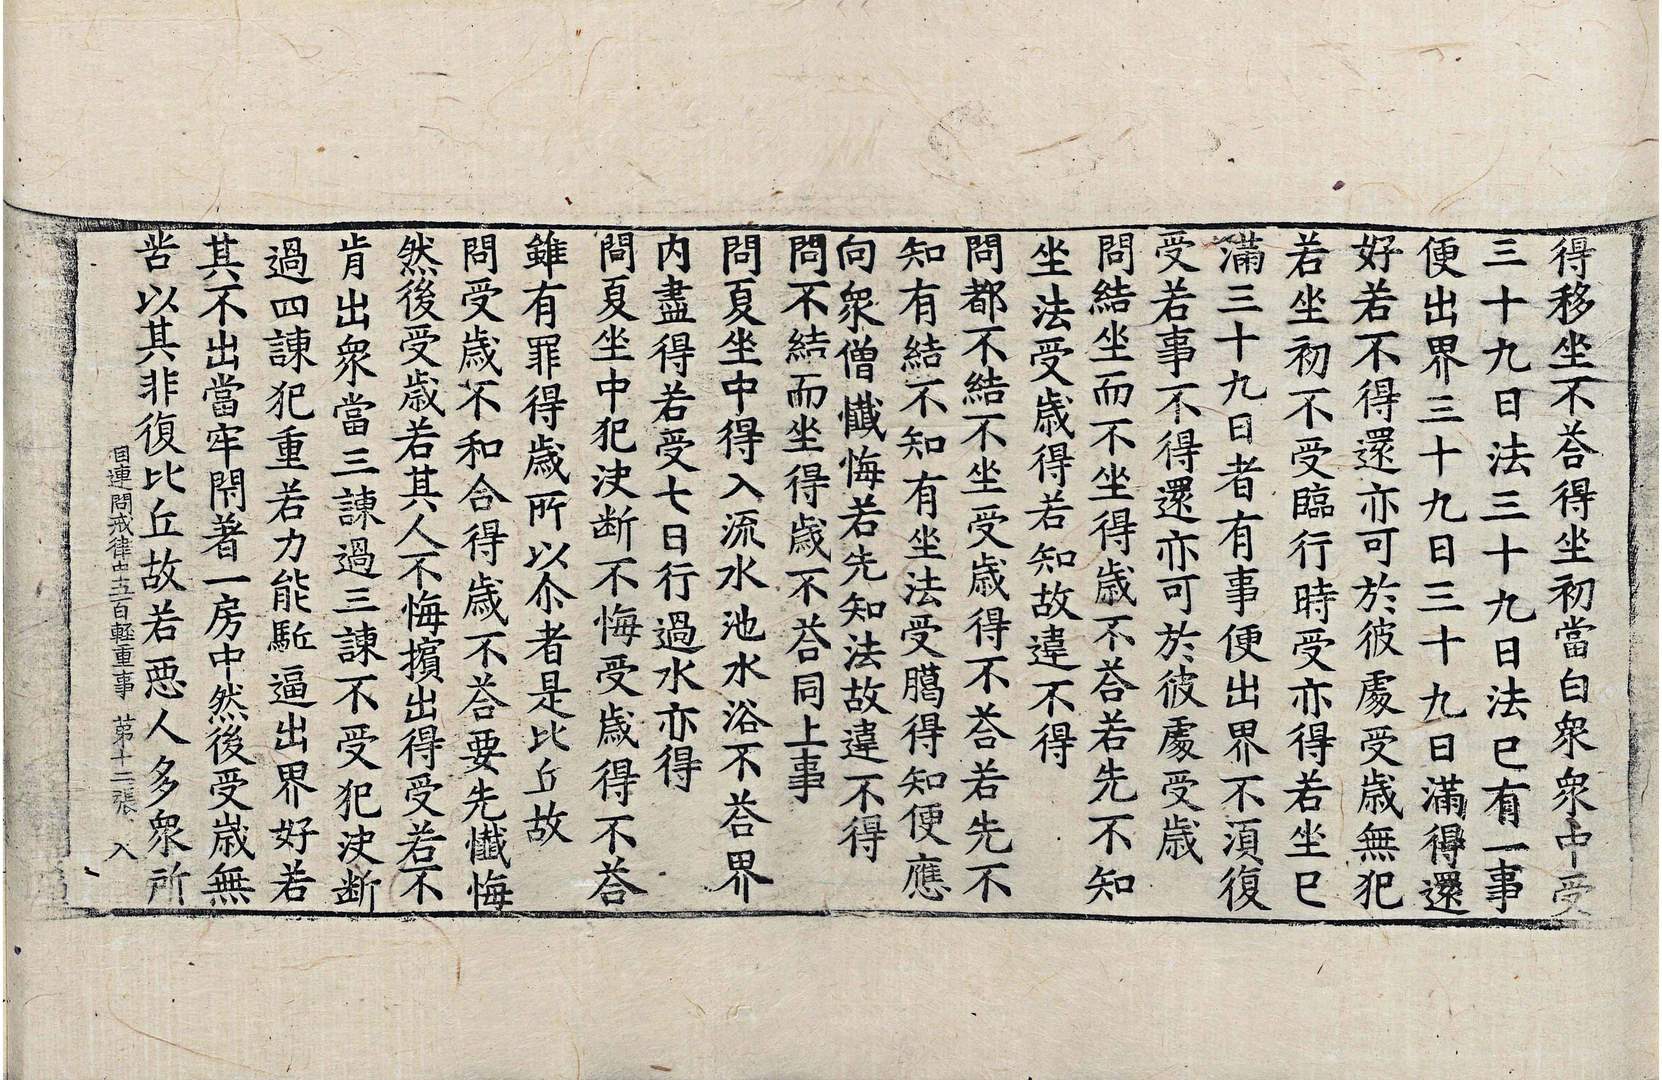 得移坐不荅得坐初當白衆衆中受
三十九日法三十九日法已有一事
便出界三十九日三十九日滿得還
好若不得還亦可於彼處受歲無犯
若坐初不受臨行時受亦得若坐已
滿三十九日者有事便出界不須復
受若事不得還亦可於彼處受歲
問結坐而不坐得歲不荅若先不知
坐法受歲得若知故違不得
問都不結不坐受歲得不荅若先不
知有結不知有坐法受臈得知便應
向衆僧懺悔若先知法故違不得
問不結而坐得歲不荅同上事
問夏坐中得入流水池水浴不荅界
内盡得若受七日行過水亦得
問夏坐中犯決断不悔受歲得不荅
雖有罪得歲所以尒者是比丘故
問受歲不和合得歲不荅要先懺悔
然後受歲若其人不悔擯出得受若不
肯出衆當三諫過三諫不受犯決断
過四諫犯重若力能駈逼出界好若
其不出當牢閇著一房中然後受歲無
咎以其非復比丘故若惡人多衆所
目連問戒律中五百輕重事 苐十二張 入